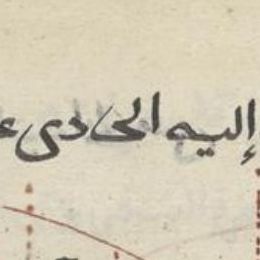 إليه الحادى ع